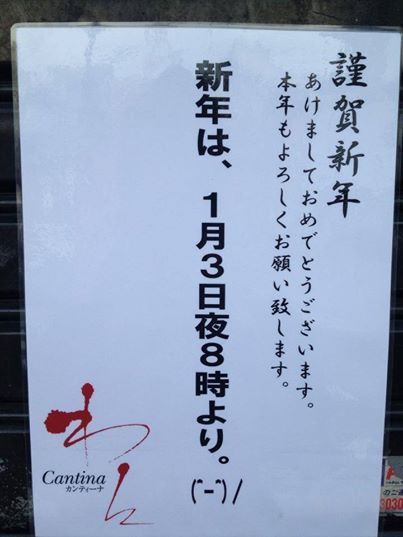 謹賀新年
あけましておめでとうございます。
本年もよろしくお願い致します。
新年は、1月3日夜8時より。(˘-˘)/
わん
Cantina
カンティーナ
のご
3030